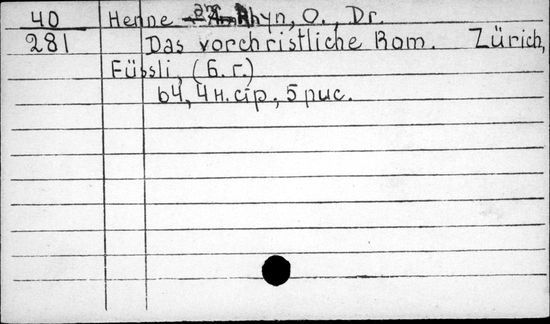 40 Henne am Rhyn, O., Dr.
281 Das vorchristliche Rom. Zürich,
Füssli, (б. г.)
64, 4 н. стр.; 5 рис.